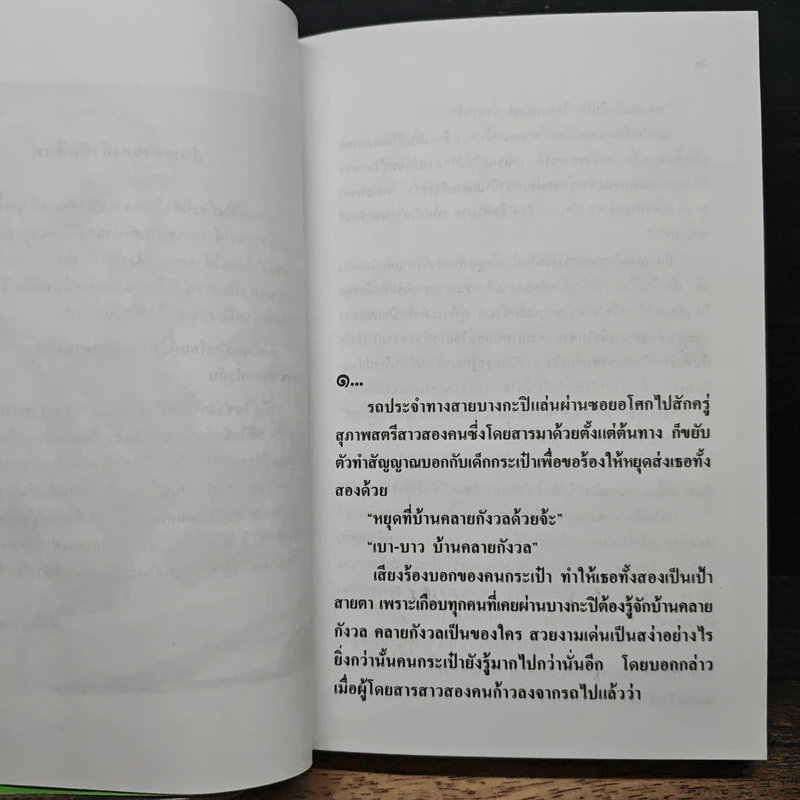 ๑...
รถประจำทางสายบางกะปิแล่นผ่านซอยอโศกไปสักครู่
สุภาพสตรีสาวสองคนซึ่งโดยสารมาด้วยตั้งแต่ต้นทาง ก็ขยับ
ตัวทำสัญญาณบอกกับเด็กกระเป๋าเพื่อขอร้องให้หยุดส่งเธอทั้ง
สองด้วย
“หยุดที่บ้านคลายกังวลด้วยจ้ะ”
“เบา-บาว บ้านคลายกังวล”
เสียงร้องบอกของคนกระเป๋า ทำให้เธอทั้งสองเป็นเป้า
สายตา เพราะเกือบทุกคนที่เคยผ่านบางกะปิต้องรู้จักบ้านคลาย
กังวล คลายกังวลเป็นของใคร สวยงามเด่นเป็นสง่าอย่างไร
ยิ่งกว่านั้นคนกระเป๋ายังรู้มากไปกว่านั่นอีก โดยบอกกล่าว
เมื่อผู้โดยสารสาวสองคนก้าวลงจากรถไปแล้วว่า